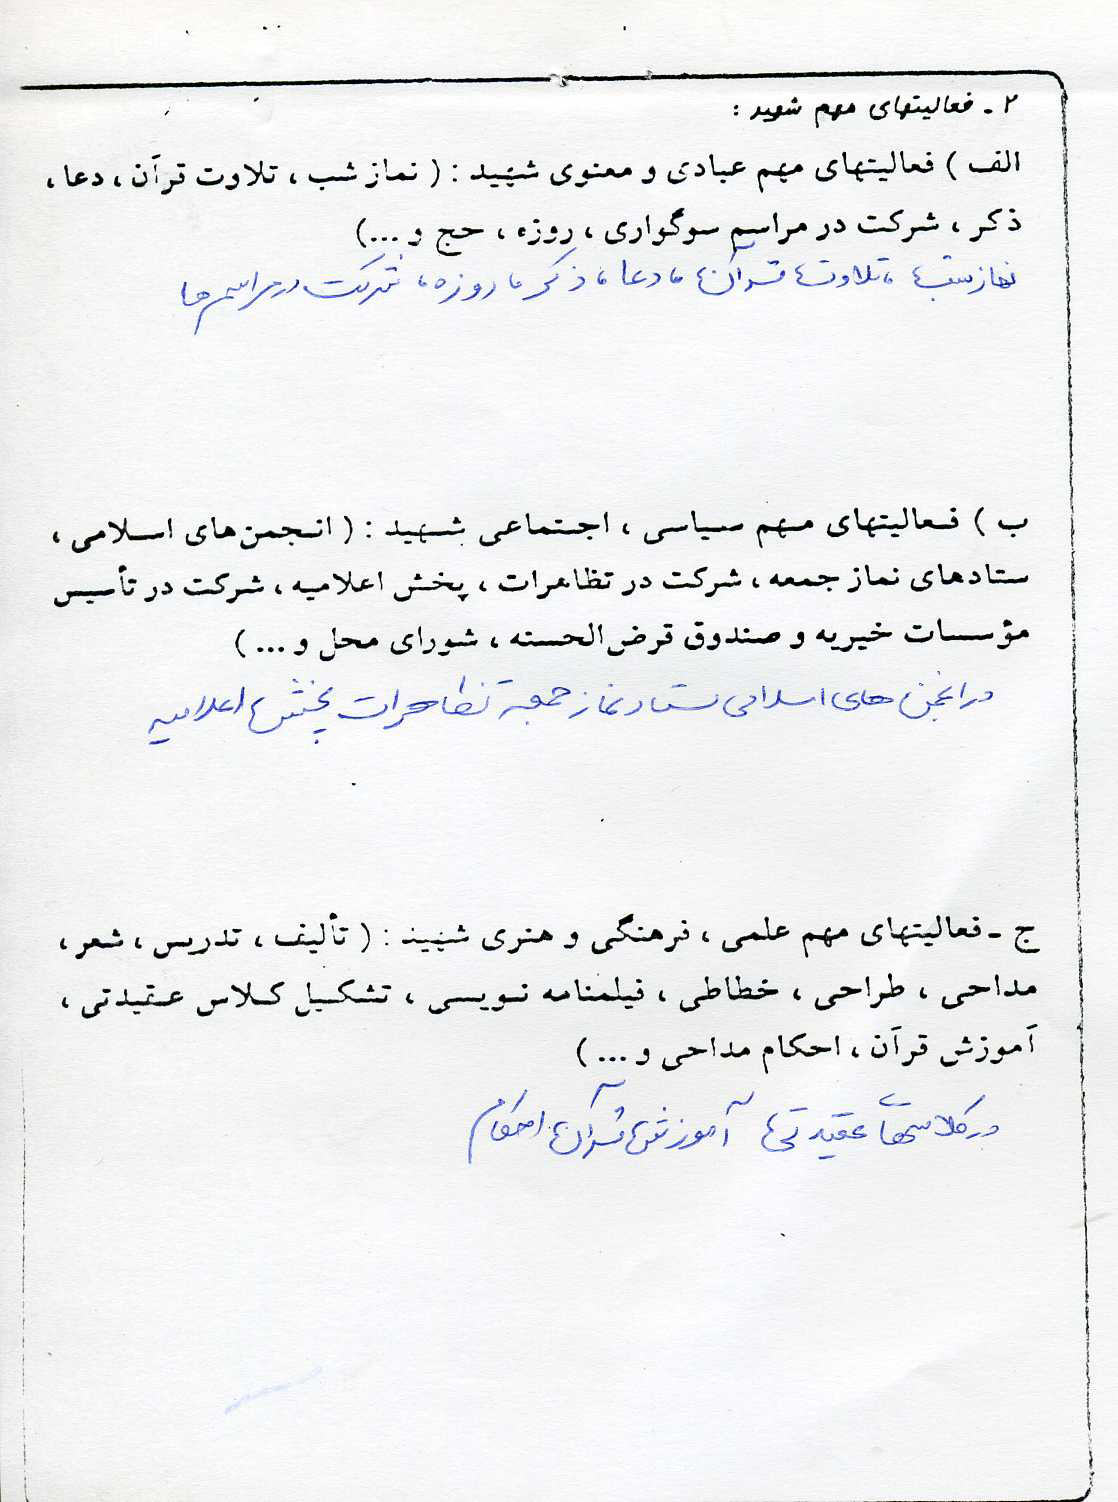 ۲ ـ فعالیتهای مهم شهید :
الف ) فعالیتهای مهم عبادی و معنوی شهید : ( نماز شب ، تلاوت قرآن ، دعا ،
ذکر ، شرکت در مراسم سوگواری ، روزه ، حج و ...)
نماز شب ، تلاوت قرآن ، دعا ، ذکر ، روزه ، شرکت در مراسم ها
ب ) فعالیتهای مهم سیاسی ، اجتماعی شهید : ( انجمن‌های اسلامی ،
ستادهای نماز جمعه ، شرکت در تظاهرات ، پخش اعلامیه ، شرکت در تأسیس
مؤسسات خیریه و صندوق قرض‌الحسنه ، شورای محل و ... )
در انجمن های اسلامی ستاد نماز جمعه تظاهرات پخش اعلامیه
ج ـ فعالیتهای مهم علمی ، فرهنگی و هنری شهید : ( تألیف ، تدریس ، شعر ،
مداحی ، طراحی ، خطاطی ، فیلمنامه نویسی ، تشکیل کلاس عقیدتی ،
آموزش قرآن ، احکام مداحی و ... )
در کلاسهای عقیدتی ، آموزش قرآن ، احکام